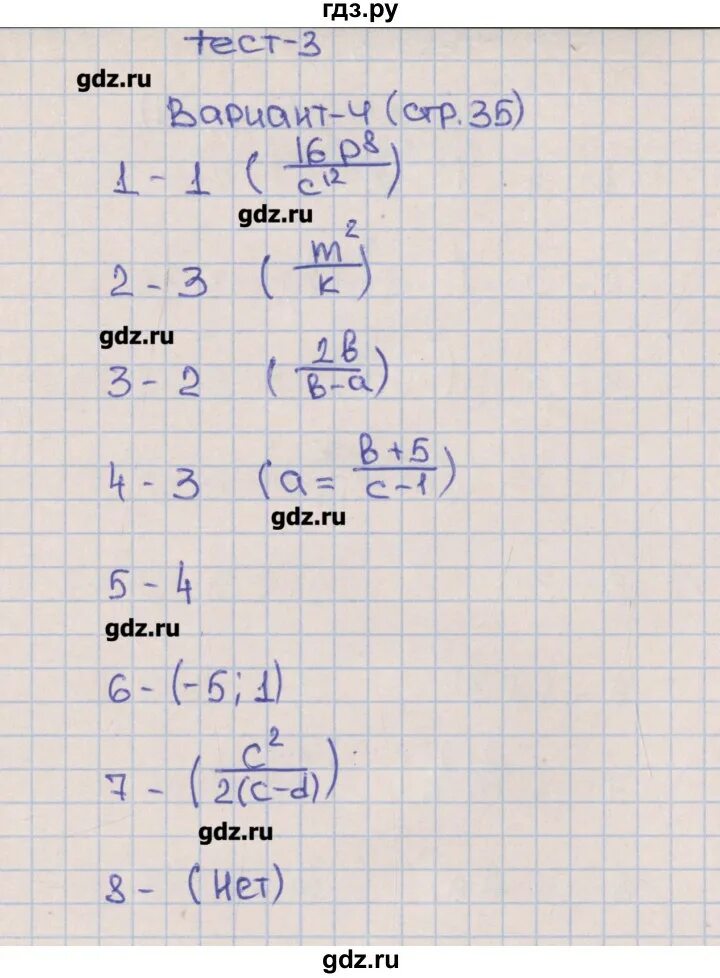 гдз.ру
тест-3
gdz.ru
Вариант-4 (стр.35)
1 - 1 (16p⁸/c¹²)
gdz.ru
2 - 3 (m²/к)
gdz.ru
3 - 2 (2в/в-а)
4 - 3 (а = в+5/с-1)
gdz.ru
5 - 4
gdz.ru
6 - (-5; 1)
7 - (c²/2(c-d))
gdz.ru
8 - (Нет)
gdz.ru